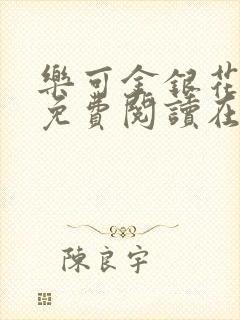 樂可金銀花
免費閱讀在
陳良宇